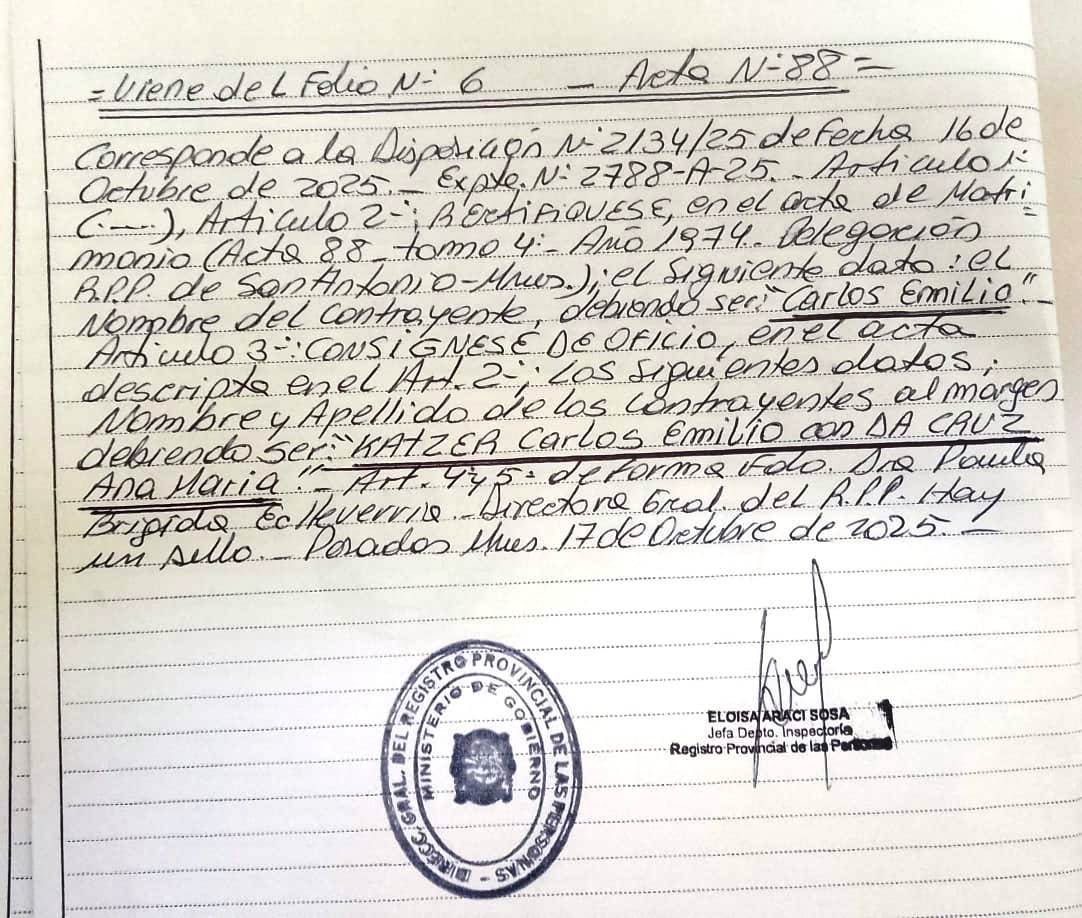 = Viene del Folio N- 6 — Acta N-88 =
Corresponde a la Disposición N-2134/25 de fecha 16 de
Octubre de 2025.- Expte. N: 2788-A-25.- Articulo 1-
(.—.), Articulo 2-; RECTIFIQUESE, en el acta de Matri=
monio (Acta 88 - tomo 4- Año 1974. Delegación
R.P.P. de San Antonio-Mnes.); el siguiente dato: el
Nombre del contrayente, debiendo ser: "Carlos Emilio".-
Articulo 3-: CONSIGNESE DE OFICIO, en el acta
descripta en el Art. 2-; los siguientes datos;
Nombre y Apellido de los contrayentes al margen
debiendo ser: "KATZER Carlos Emilio con DA CRUZ
Ana Maria".- Art. 4y5- de forma Fdo. Dra Paula
Brigida Echeverria - Directora Gral. del R.P.P. Hay
un sello. - Posadas Mnes. 17 de Octubre de 2025. -
DIRECC. GRAL. DEL REGISTRO PROVINCIAL DE LAS PERSONAS -
MINISTERIO DE GOBIERNO
ELOISA ARACI SOSA
Jefa Depto. Inspectoría
Registro Provincial de las Personas